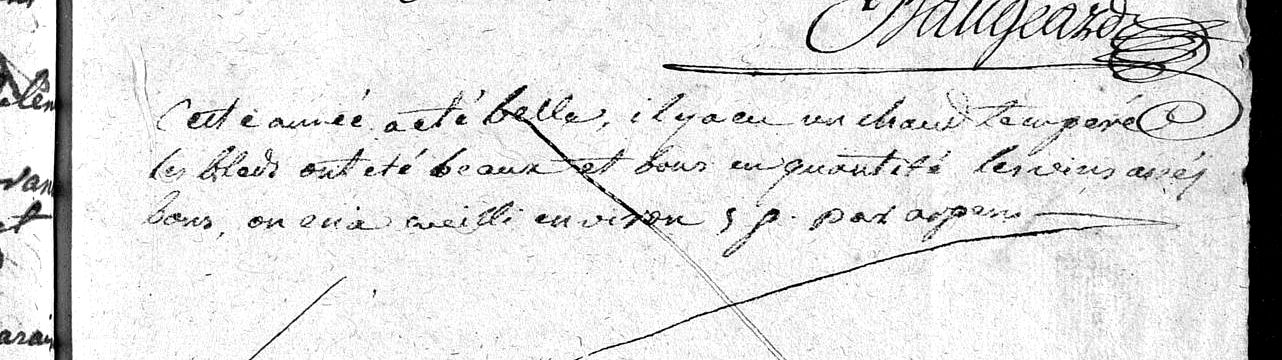 Baugeard
Cette année a eté belle, il y a eu un chaud temperé
les bleds ont eté beaux et bons en quantité les vins assés
bons, on en a cueilli environ 5 p. par arpens